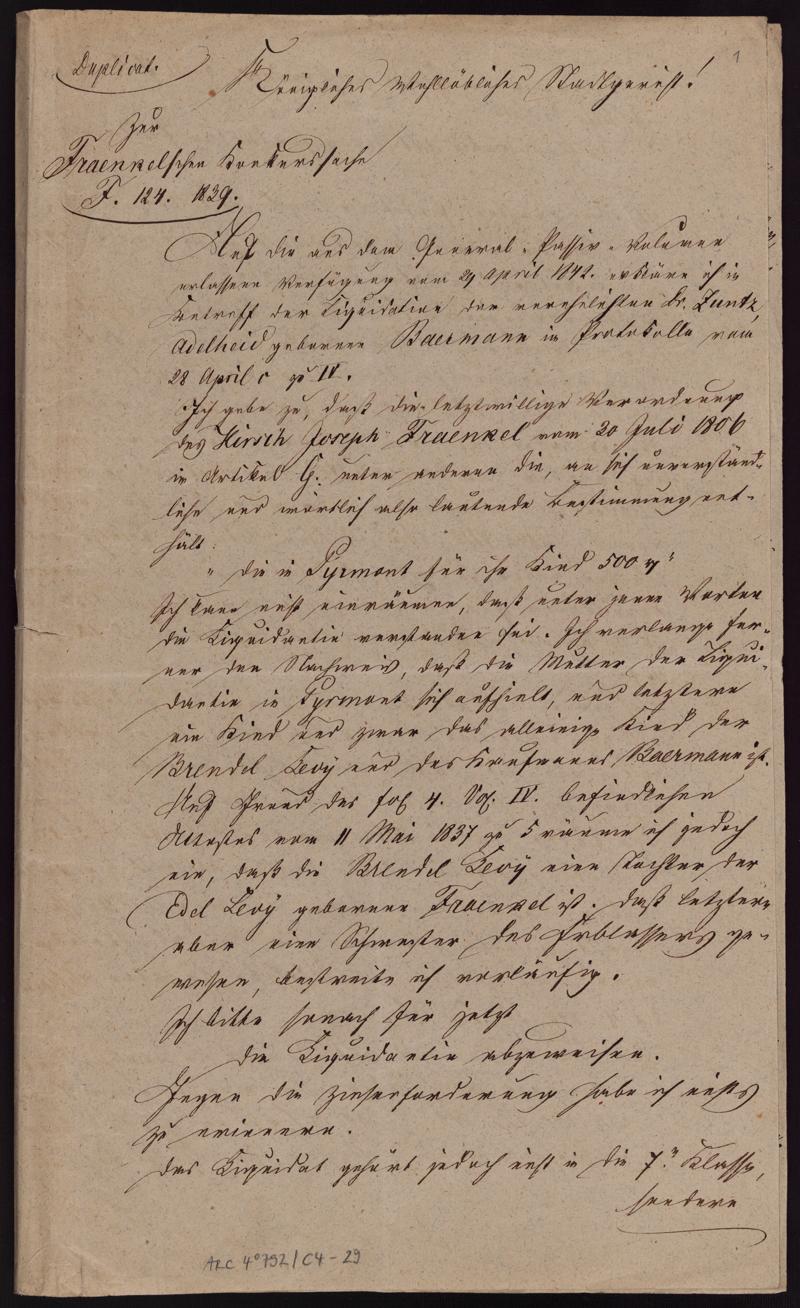 Duplicat.
1
Königliches Wohllöbliches Stadtgericht!
Zur
Fraenkelschen Konkurssache
F. 124. 1839.
Auf die aus dem General-Passiv-Volumen
erlassene Verfügung vom 29 April 1842. erkläre ich in
Betreff der Liquidation der verehelichten Dr. Zuntz,
Adelheid geborenen Baermann im Protokolle vom
28 April c zu IV.
Ich gebe zu, daß die letztwillige Verordnung
des Hirsch Joseph Fraenkel vom 20 Juli 1806
im Artikel G. unter anderen die, an sich unverständ-
liche und wörtlich also lautende Bestimmung ent-
hält:
"die in Pyrmont für ihr Kind 500 rt"
Ich kann nicht einräumen, daß unter jenen Worten
die Liquidantin verstanden sei. Ich verlange fer-
ner den Nachweis, daß die Mutter der Liqui-
dantin in Pyrmont sich aufhielt, und letztere
ein Kind und zwar das alleinige Kind der
Brendel Levÿ und des Kaufmanns Baermann ist.
Auf Grund des fol 4. Vol. IV. befindlichen
Attestes vom 11 Mai 1837 zu 5 räume ich jedoch
ein, daß die Brendel Levÿ eine Tochter der
Edel Levÿ geborenen Fraenkel ist. Daß letztere
aber eine Schwester des Erblassers ge-
wesen, bestreite ich vorläufig.
Ich bitte sonach für jetzt
die Liquidantin abzuweisen.
Gegen die Zinsenforderung habe ich nichts
zu erinnern.
Das Liquidat gehört jedoch nicht in die 7te Klasse,
sondern
ARC 4° 792/C4-29